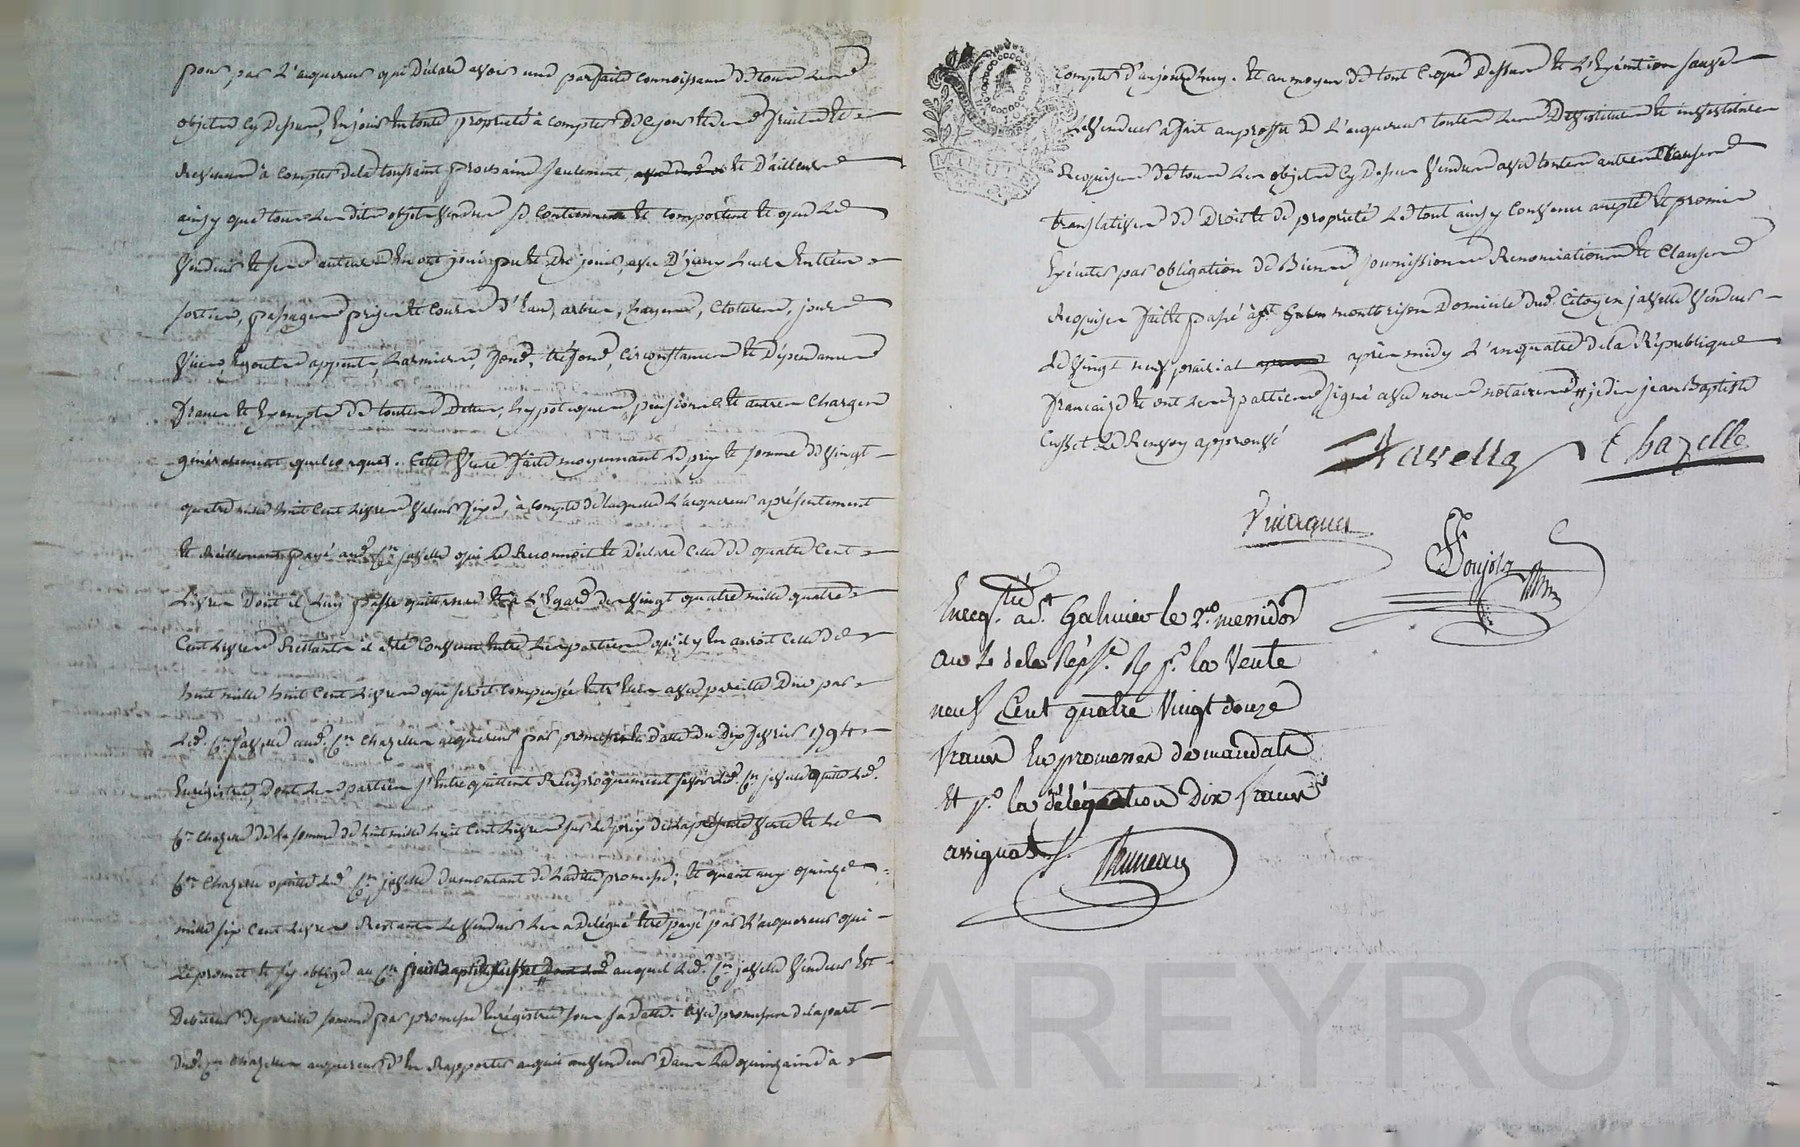 pour, par L'acquereur qui Déclare avoir une parfaite connoissance de tous Les
objets cy Dessus, En jouir En toute proprieté à compter De ce jour & des fruits &
Revenus à Compter de la toussaint prochaine seulement, & D'ailleurs
ainsy que tous Les dits objets vendus se Contiennent & comportent & que Le
Vendeur & ses auteurs En ont joui pu & Dû jouir, avec Leurs Entrées
sorties, passages prises & Cours d'Eau, arbres, hayes, Clotures, jours
Vues Egouts appents Larmiers, fond, tréfond, Circonstances & Dépendances
Francs & Exempts de toutes Dettes, hypoteques, pensions & autres Charges
généralement quelconques. Cette Vente faite moyennant Le prix & somme de vingt
quatre mille huit Cent Livres valeur fixe, à compte de laquelle L'acquereur a présentement
& Réellement payé aud. Cen javelle qui Le Reconnoit & Déclare Celle de quatre Cent
Livres Dont il Luy passe quittance & à L'Egard des vingt quatre mille quatre
Cent Livres Restantes il a été Convenu Entre Les parties qu'il y En auroit Celle de
huit mille huit Cent Livres qui seroit Compensée Entre Eux avec pareille Due par
Led. Cen javelle aud. Cen Chazelle acquereur par promesse En Datte du Dix fevrier 1794
Enregistrée, Dont Les parties s'Entrequittent Réciproquement savoir Led. Cen javelle quitte Led.
Cen Chazelle de la somme de huit mille huit Cent Livres sur Le prix de la présente vente & Led
Cen Chazelle quitte Led. Cen javelle du montant de Ladite promesse; & quant aux quinze
mille six Cent Livres Restantes Le vendeur Les a Délégué Etre payé par L'acquereur qui
Le promet & s'y oblige au Cen auquel Led. Cen javelle Vendeur Est
Debiteur de pareille somme par promesse Enregistrée sous sa Datte. avec promesse de la part
Dud. Cen Chazelle acquereur d'En Rapporter acquit au Vendeur Dans La quinzaine à
MINUTE
Compter d'aujourd'huy. & au moyen de tout Ce que Dessus & L'Exécution sauve
Le Vendeur a fait au proffit de L'acquereur toutes Les Devestitures & investitures
Requises de tous Les objets cy Dessus Vendus avec toutes autres Clauses
translatives de Droit & de proprieté Le tout ainsy Convenu accepté & promis
Exécuter par obligation de Biens soumissions Renonciations & Clauses
Requises fait & passé à montbrison Domicile dud. Citoyen javelle Vendeur
Le vingt neuf prairial après midy L'an quatre de la République
Francaise & ont Les parties signé avec nous notaires # je dis jean Baptiste
Cusset Le Renvoy approuvé
Javelle Chazelle
Vinaguer
Boujols
Enregtré. à St Galmier le 2. messidor
an 4 de la Rép. R p. la Vente
neuf Cent quatre Vingt douze
francs En promesses de mandats
Et p. la délégation Dix francs
assignats.
Thuneau
CHAREYRON